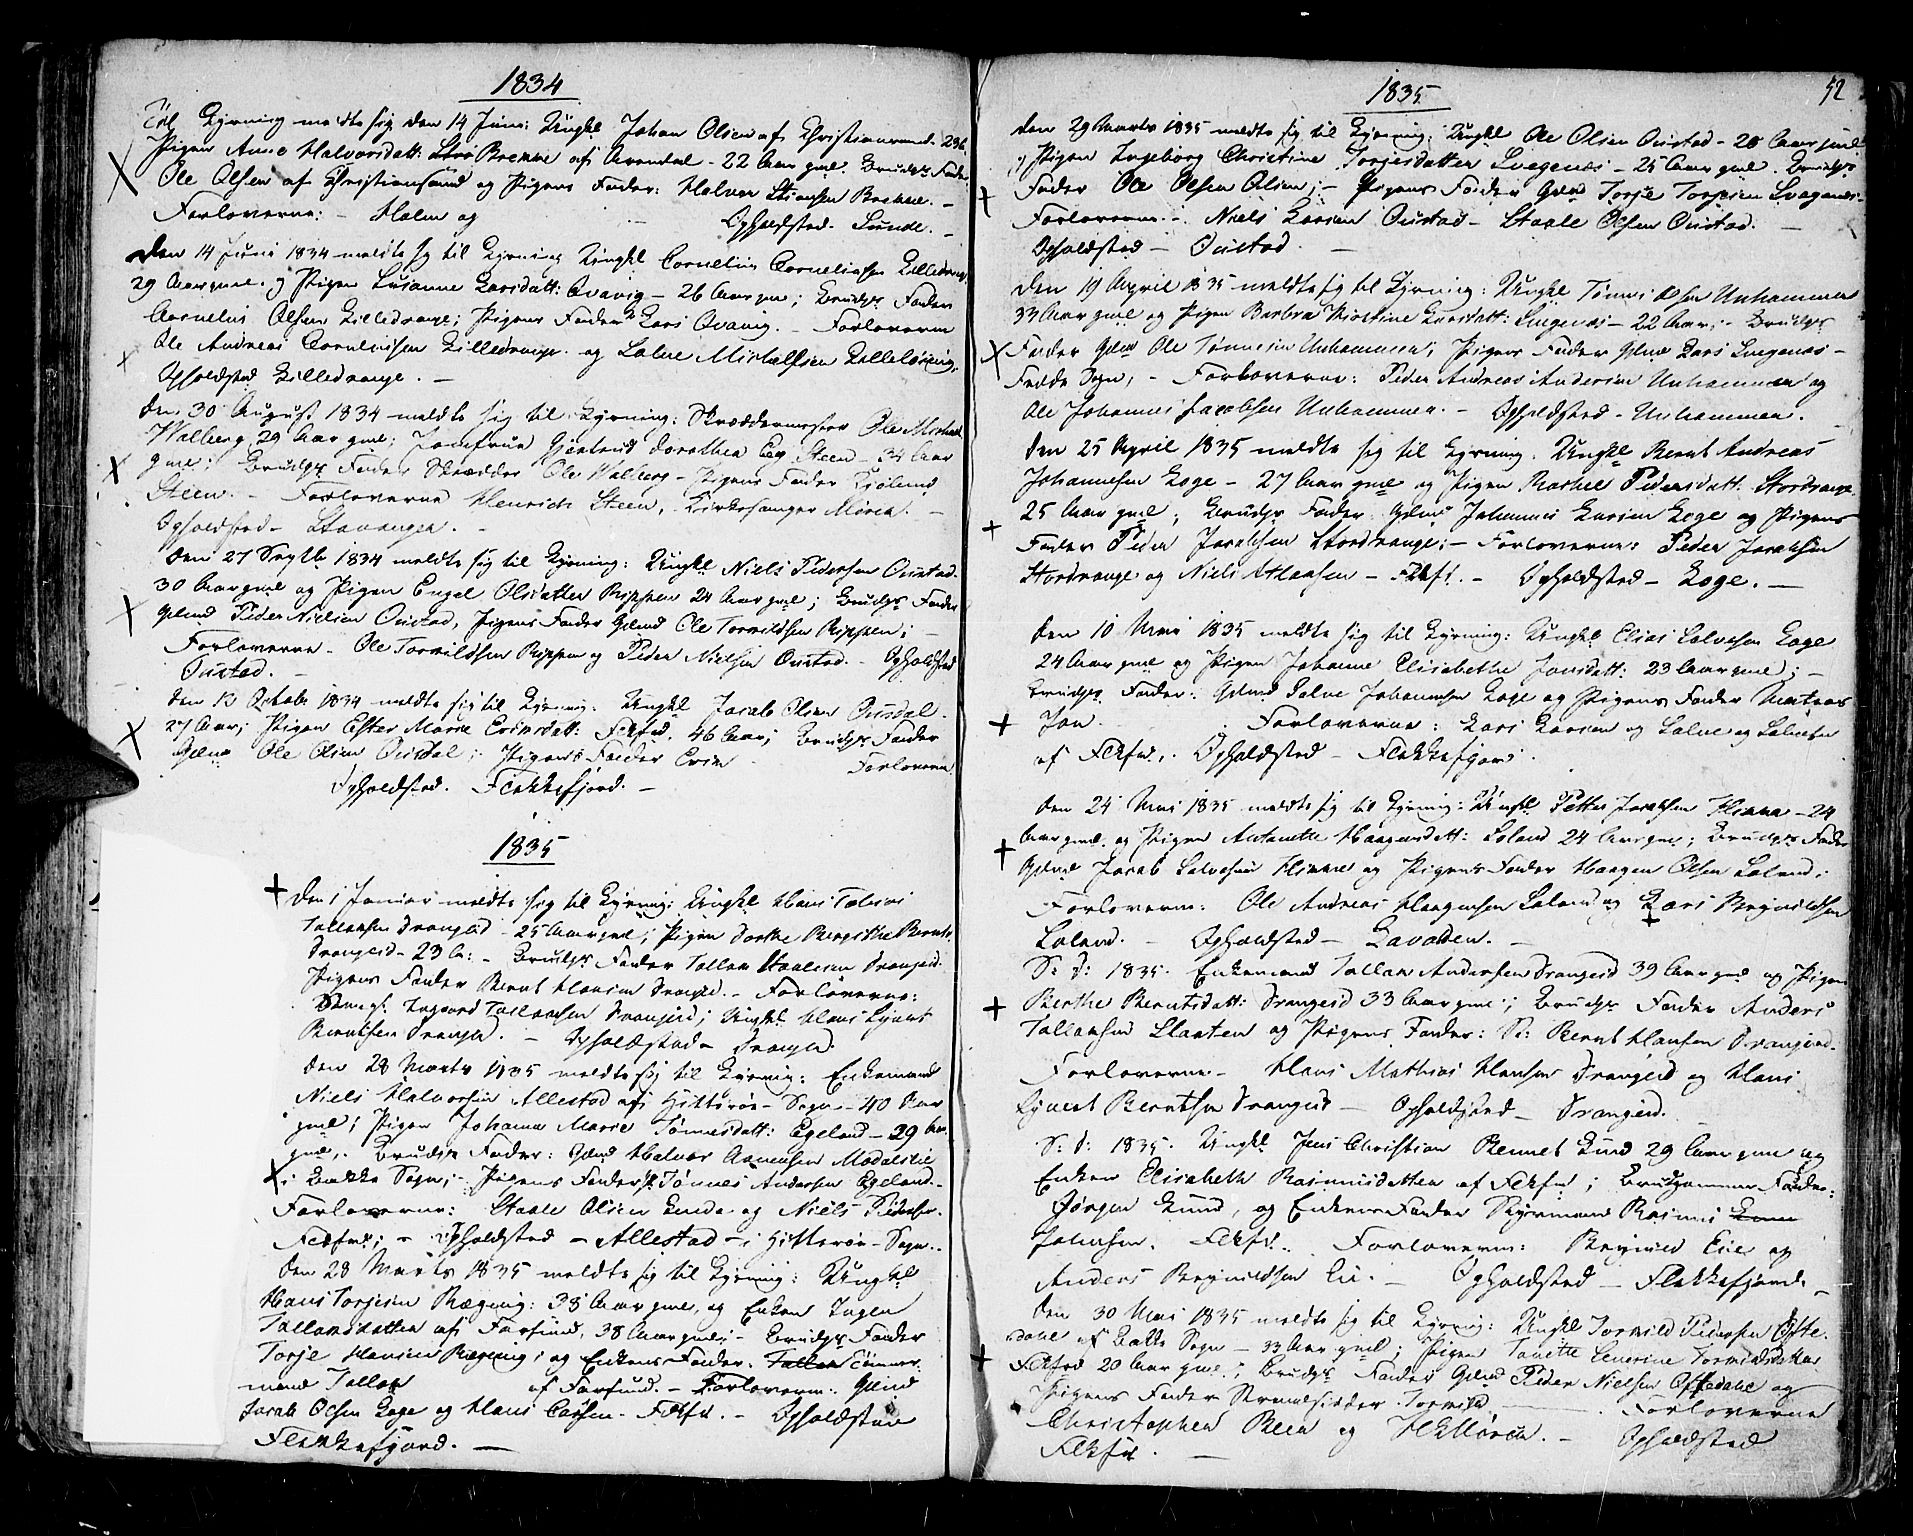 1834
Til Lysning meldte sig den 14 Juni: Ungkl Johan Olsen af Christiansand - 23
Pigen Anne Halvorsdatt: Brekke af Arendal - 22 Aar gml. Brudgs Fader
Ole Olsen af Christiansand og Pigens Fader: Halvor Brekke. -
Forloverne: - Holm og Opholdsted. Sunde. -
Den 14 Juni 1834 meldte sig til Lysning Ungkl Cornelius Corneliussen Lilledrange
29 Aar gml. og Pigen Susanne Larsdatt: Qvavig - 26 Aar gml; Brudgs Fader
Cornelius Olsen Lilledrange; Pigens Fader Lars Qvavig. - Forloverne
Ole Andreas Corneliussen Lilledrange. og Salve Michelsen
Opholdsted Lilledrange. -
Den 30 August 1834 meldte sig til Lysning: Skræddermester Ole Michael
Walberg, 29 Aar gml; Jomfrue Gjertrud Dorothea Eeg Steen - 34 Aar
gml; Brudgs Fader Skrædder Ole Walberg - Pigens Fader
Steen. - Forloverne Henrich Steen, Kirkesanger Moria. -
Opholdsted - Stavanger. -
Den 27 Septb 1834 meldte sig til Lysning: Ungkl Niels Pedersen Oustad.
30 Aar gml og Pigen Engel Olsdatter Rippen 24 Aar gml; Brudgs Fader
Gdmd Peder Nielsen Oustad, Pigens Fader Gdmd Ole Tormildsen Rippen; -
Forloverne - Ole Tormildsen Rippen og Peder Nielsen Oustad. - Opholdsted
Oustad. -
Den 13 Octob 1834 meldte sig til Lysning: Ungkl Jacob Olsen Ousdal.
27 Aar; Pigen Ester Marie Ericsdatt: Fekfd. 46 Aar; Brudgs Fader
Gdmd Ole Olsen Ousdal; Pigens Fader Eric Forloverne
Opholdsted. Flekkefjord. -
1835
Den 1 Januar meldte sig til Lysning: Ungkl Hans Tobias
Tallaksen Drangeid - 25 Aar gml; Pigen Dorthe Bergithe Berntsd
Drangeid - 23 A: - Brudgs Fader Tallak Staalesen Drangeid.
Pigens Fader Bernt Hansen Drangeid. - Forloverne:
Tallaksen Drangeid; Ungkl Hans Sjvert
Berntsen Drangeid. - Opholdsted - Drangeid.
Den 28 Marts 1835 meldte sig til Lysning: Enkemand
Niels Halvorsen Allestad af Hitterøe - Sogn - 40 Aar
gml; Pigen Johanne Marie Tønnesdatt: Egeland - 29 Aar
gml. Brudgs Fader: Gdmd Halvor Aanensen
i Bakke Sogn; - Pigens Fader Tønnes Andersen Egeland. -
Forloverne: Staale Olsen Lunde og Niels Pedersen
Fekfd; - Opholdsted - Allestad - i Hitterøe - Sogn. -
Den 28 Marts 1835 meldte sig til Lysning: Ungkl
Hans Torjesen Rægevig: 38 Aar gml, og Enken Inger
Tallaksdatter af Farsund, 38 Aar gml; - Brudgs Fader
Torje Hansen Rægevig; og Enkens Fader. Tallak Tømmer
mand Tallak af Farsund. - Forloverne: Gdmd
Jacob Olsen Loge og Hans Carlsen. Fekfd. - Opholdsted
Flekkefjord. -
1835
52
Den 29 Marts 1835 meldte sig til Lysning: Ungkl Ole Olsen Oustad - 28 Aar gml
og Pigen Ingeborg Christine Torjesdatter Svegenæs - 25 Aar gml. Brudgs
Fader Ole Olsen Olsen; - Pigens Fader Gdmd Torje Torjesen Svegenæs. -
Forloverne - Niels Larsen Oustad - Staale Olsen Oustad. -
Opholdsted - Oustad. -
Den 19 April 1835 meldte sig til Lysning: Ungkl Tønnes Olsen Unhammer
33 Aar gml og Pigen Barbra Kirstine Larsdatt: Svegenæs - 22 Aar; - Brudgs
Fader Gdmd Ole Tønnesen Unhammer; Pigens Fader Gdmd Lars Svegenæs -
Fedde Sogn; - Forloverne: Peder Andreas Andersen Unhammer og
Ole Johannes Jacobsen Unhammer. - Opholdsted - Unhammer.
Den 25 April 1835 meldte sig til Lysning. Ungkl Bernt Andreas
Johannesen Loge - 27 Aar gml og Pigen Rachel Pedersdatt: Stordrange
25 Aar gml; Brudgs Fader Gdmd Johannes Larsen Loge og Pigens
Fader Peder Jacobsen Stordrange; - Forloverne: Peder Jacobsen
Stordrange og Niels Hansen - Fekf. - Opholdsted - Loge. -
Den 10 Mai 1835 meldte sig til Lysning: Ungkl Elias Salvesen Loge
24 Aar gml og Pigen Johanne Elisabethe Jonsdatt: 23 Aar gml; -
Brudgs Fader: Gdmd Salve Johannesen Loge og Pigens Fader Matros
Jon. Forloverne: Lars Larsen og Salve Salvesen
af Fekfd. Opholdsted - Flekkefjord.
Den 24 Mai 1835 meldte sig til Lysning: Ungkl Petter Jacobsen Hinna - 24
Aar gml. og Pigen Antonette Haagensdatt: Loland 24 Aar gml; Brudgs Fader
Gdmd Jacob Salvesen Hinna og Pigens Fader Haagen Olsen Loland;
Forloverne: Ole Andreas Haagensen Loland og Lars Reynildsen
Loland. - Opholdsted - Lavolden. -
S: D: 1835. Enkemand Tallak Andersen Drangeid 39 Aar gml og Pigen
Berthe Berntsdatt: Drangeid 33 Aar gml; Brudgs Fader Anders
Tallaksen Slaatten og Pigens Fader: S: Bernt Hansen Drangeid.
Forloverne - Hans Mathias Hansen Drangeid og Hans
Sjvert Berntsen Drangeid - Opholdsted - Drangeid.
S: D: 1835. Ungkl Jens Christian Bennet Lund 29 Aar gml og
Enken Elisabeth Rasmusdatter af Fekfd; Brudgommens Fader:
Jørgen Lund, og Enkens Fader Styrmand Rasmus
Johnsen. Fekfd. Forloverne: Reynild Eie og
Anders Reynildsen Eie. - Opholdsted - Flekkefjord. -
Den 30 Mai 1835 meldte sig til Lysning: Ungkl Tormild Pedersen Ofte-
dahl af Bakke Sogn - 33 Aar gml; Pigen Tonette Severine Tormildsdatter
Fekfrd 20 Aar gml; Brudgs Fader Gdmd Peder Nielsen Oftedahl og
Pigens Fader Tormild - Forloverne
Christopher Beer og H Mørch. - Opholdsted
Fekfd. -